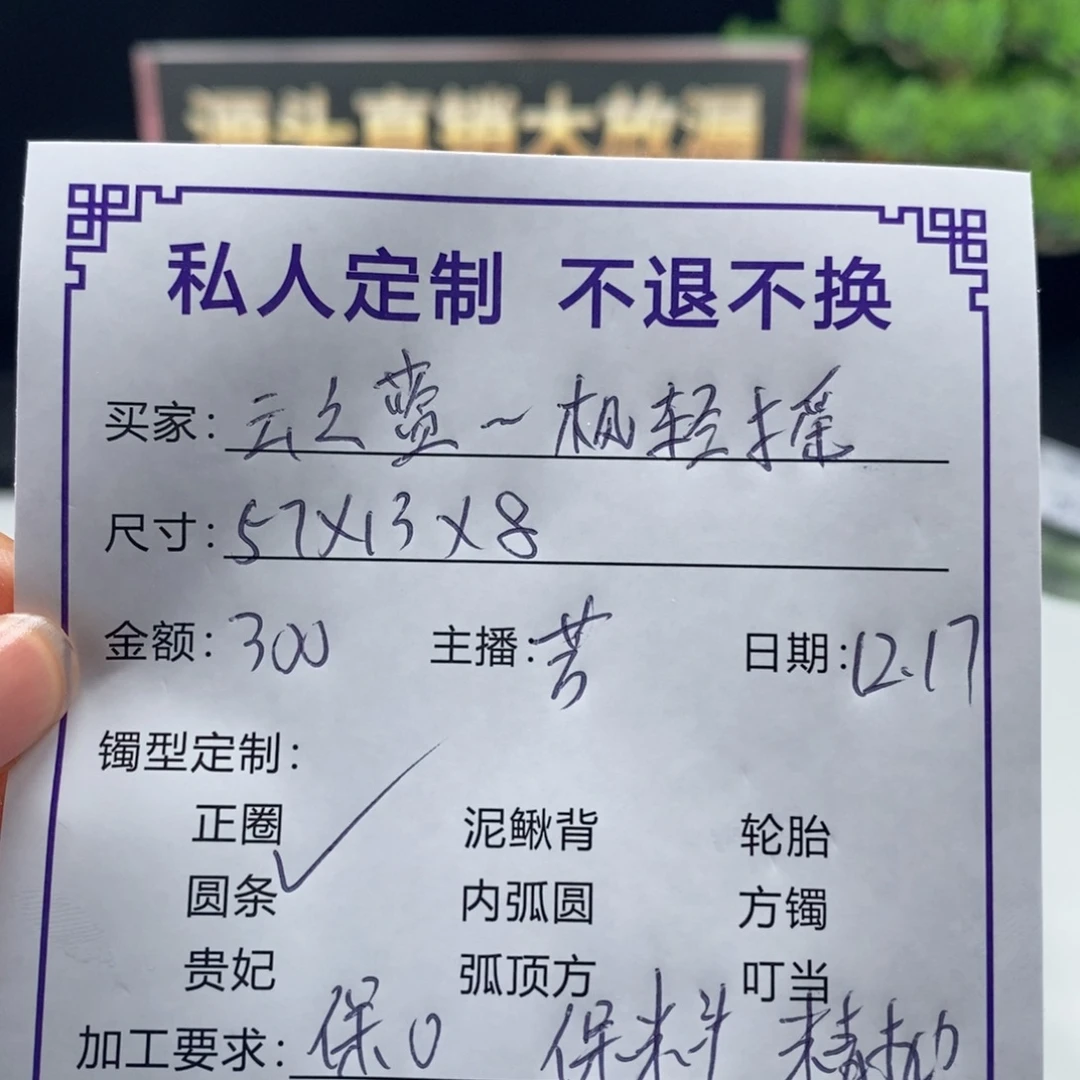 源头直销大放漏
私人定制 不退不换
买家: 云之蓝~枫轻摇
尺寸: 57X13X8
金额: 300 主播: 芳 日期: 12.17
镯型定制:
正圈 泥鳅背 轮胎
圆条✓ 内弧圆 方镯
贵妃 弧顶方 叮当
加工要求: 保0 保料 精抛